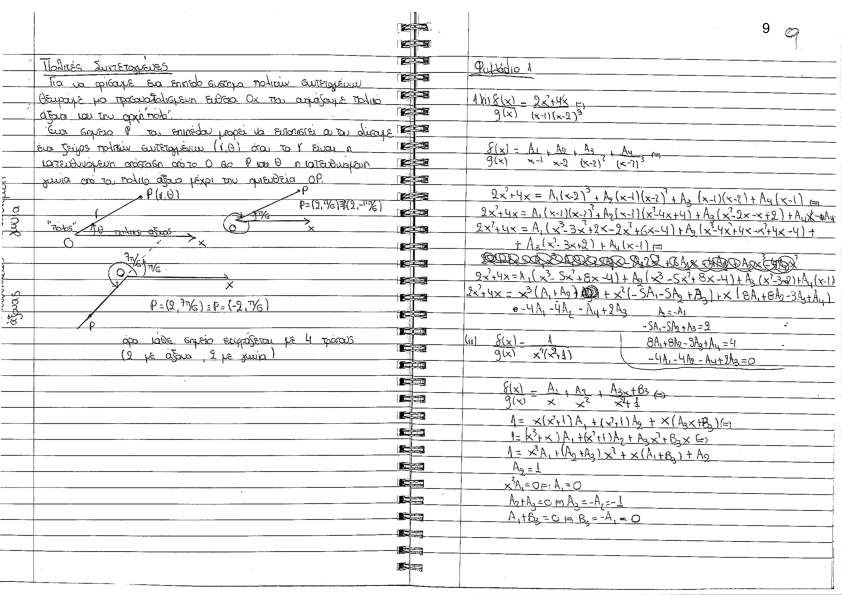 9
9
Πολικές Συντεταγμένες
Για να ορίσουμε ένα επίπεδο σύστημα πολικών συντεταγμένων
θεωρούμε μια προσανατολισμένη ευθεία Οx που ονομάζουμε πολικό
άξονα και την αρχή "πόλο".
Ένα σημείο P του επιπέδου μπορεί να εντοπιστεί αν του δώσουμε
ένα ζεύγος πολικών συντεταγμένων (r,θ) όπου το r είναι η
κατευθυνόμενη απόσταση από το Ο στο P και θ η κατευθυνόμενη
γωνία από τον πολικό άξονα μέχρι την ημιευθεία OP.
P(r,θ)
r
"πόλος"
O
θ
πολικός άξονας
x
P
P=(2,π/6)≡(2,-11π/6)
π/6
x
7π/6
O
π/6
x
P=(2,7π/6)≡P=(-2,π/6)
P
άρα κάθε σημείο εκφράζεται με 4 τρόπους
(2 με άξονα, 2 με γωνία)
γωνία
άξονας
Φυλλάδιο 1
f(x)/g(x) = 2x²+4x/(x-1)(x-2)³ ⇔
f(x)/g(x) = A₁/x-1 + A₂/x-2 + A₃/(x-2)² + A₄/(x-2)³ ⇔
2x²+4x = A₁(x-2)³ + A₂(x-1)(x-2)² + A₃(x-1)(x-2) + A₄(x-1) ⇔
2x²+4x = A₁(x-2)(x-2)² + A₂(x-1)(x²-4x+4) + A₃(x²-2x-x+2) + A₄x-A₄
+ A₃(x²-3x+2) + A₄(x-1) ⇔
2x²+4x = A₁(x³-5x²+8x-4) + A₂(x³-5x²+8x-4) + A₃(x²-3x+2) + A₄(x-1)
2x²+4x = x³(A₁+A₂) + x²(-5A₁-5A₂+A₃) + x(8A₁+8A₂-3A₃+A₄)
-4A₁-4A₂-A₄+2A₃
A₂=-A₁
-5A₁-5A₂+A₃=2
8A₁+8A₂-3A₃+A₄=4
-4A₁-4A₂-A₄+2A₃=0
(ii) f(x)/g(x) = 1/x²(x²+1)
f(x)/g(x) = A₁/x + A₂/x² + A₃x+B₃/x²+1 ⇔
1 = x(x²+1)A₁ + (x²+1)A₂ + x²(A₃x+B₃) ⇔
1 = (x³+x)A₁ + (x²+1)A₂ + A₃x²+B₃x ⇔
1 = x³A₁ + (A₂+A₃)x² + x(A₁+B₃) + A₂
A₂=1
x³A₁=0 ⇔ A₁=0
A₂+A₃=0 ⇔ A₃=-A₂=-1
A₁+B₃=0 ⇔ B₃=-A₁=0